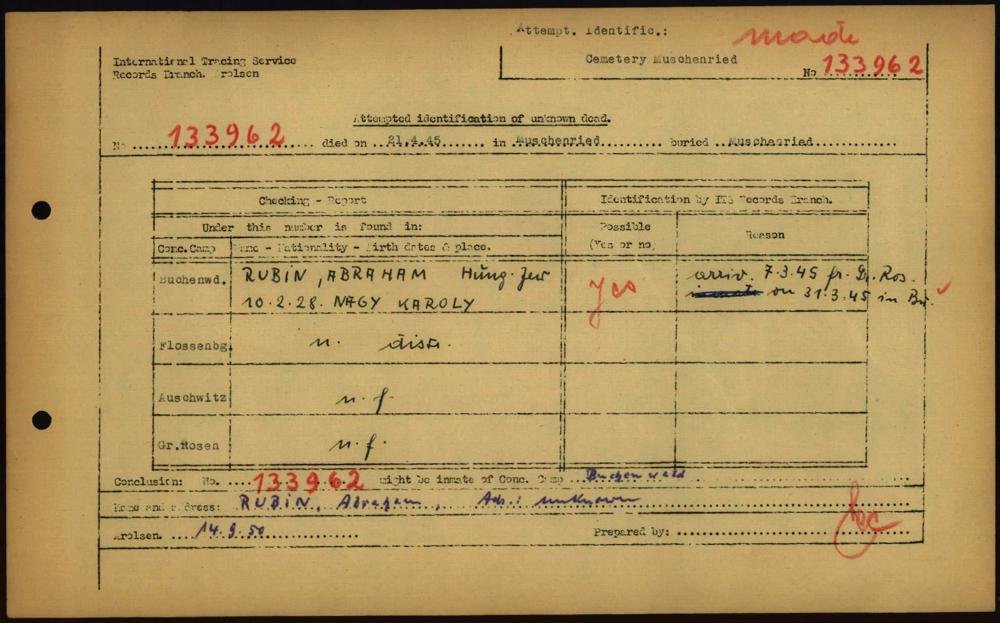 Attempt. Identific.: made
International Tracing Service
Records Branch. Arolsen
Cemetery Muschenried
No 133962
Attempted identification of unknown dead.
No 133962 died on 21.4.45 in Muschenried buried Muschenried
Checking - Report
Identification by ITS Records Branch.
Under this number is found in:
Possible
(Yes or no)
Reason
Conc.Camp Name - Nationality - Birth dates & place.
Buchenwd. RUBIN, ABRAHAM Hung. Jew yes arriv. 7.3.45 fr. Gr. Ros.
10.2.28. NAGY KAROLY on 31.3.45 in Bu.
Flossenbg. n. distr.
Auschwitz n.f.
Gr.Rosen n.f.
Conclusion: No. 133962 might be inmate of Conc. Camp Buchenwald
Name and address: RUBIN, Abraham, Adr.: unknown
Arolsen. 14.9.50 Prepared by: